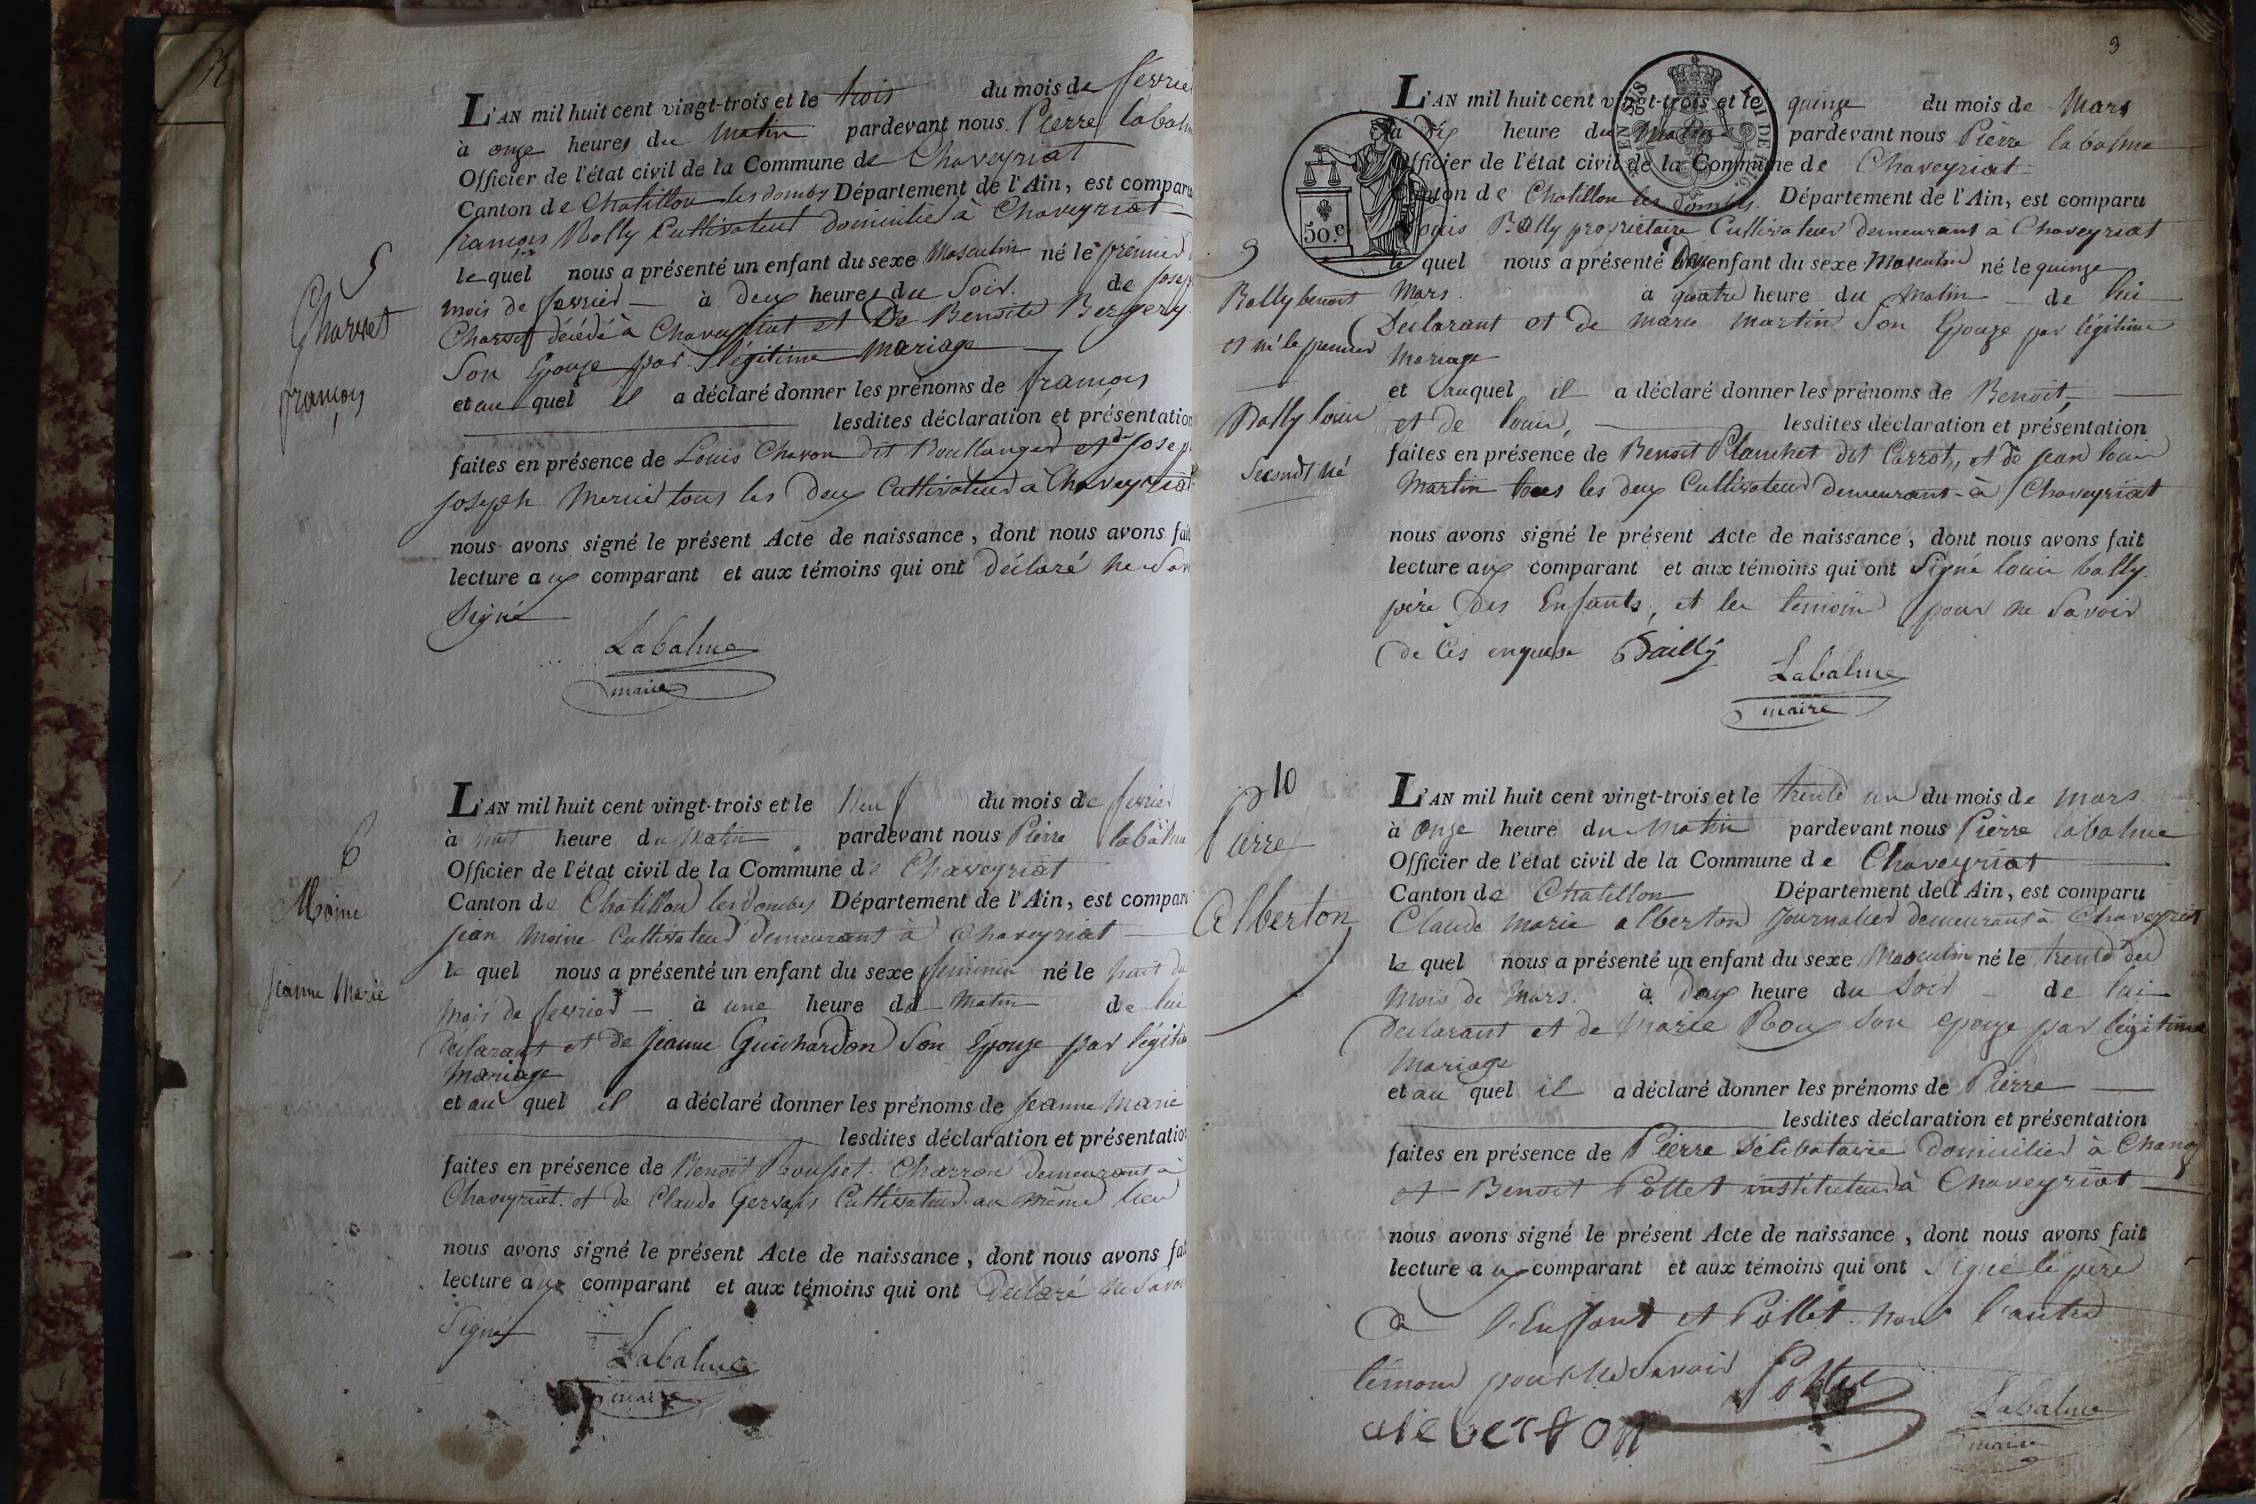 5
Charvet
françois
L'AN mil huit cent vingt-trois et le trois du mois de février
à onze heures du matin pardevant nous Pierre labalm
Officier de l'état civil de la Commune de Chaveyriat
Canton de Chatillon les dombes Département de l'Ain, est comparu
françois Rolly Cultivateur domicilié à Chaveyriat
le quel nous a présenté un enfant du sexe Masculin né le prémier
mois de février à deux heures du Soir. de josep
Charvet décédé à Chaveyriat et De Benoite Bergery
Son Epouze par légitime Mariage
et au quel il a déclaré donner les prénoms de françois
lesdites déclaration et présentation
faites en présence de Louis Chavon dit Boullanger et de Josep
joseph Merrie tous les deux Cultivateur à Chaveyriat
nous avons signé le présent Acte de naissance, dont nous avons fait
lecture aux comparant et aux témoins qui ont déclaré ne Sav
Signé
Labalme
maire
6
Moine
jeanne Marie
L'AN mil huit cent vingt-trois et le Neuf du mois de fevrier
à huit heure du Matin pardevant nous Pierre labalme
Officier de l'état civil de la Commune de Chaveyriat
Canton de Chatillon les dombes Département de l'Ain, est compar
jean Moine Cultivateur demeurant à Chaveyriat
le quel nous a présenté un enfant du sexe feminin né le huit du
mois de fevrier à une heure du Matin de lui
déclarant et de jeanne Guichardon Son Epouze par légiti
Mariage
et au quel il a déclaré donner les prénoms de jeanne Marie
lesdites déclaration et présentation
faites en présence de Benoit Rousset Charron demeurant à
Chaveyriat. et de Claude Gervais Cultivateur au même lieu
nous avons signé le présent Acte de naissance, dont nous avons fai
lecture aux comparant et aux témoins qui ont déclaré ne Savoi
Signé
Labalme
maire
3
9
Bally benoit
et né le premier
Bally louis
Second né
50.c
L'AN mil huit cent vingt-trois et le quinze du mois de Mars
à dix heure du Matin pardevant nous Pierre labalme
Officier de l'état civil de la Commune de Chaveyriat
Canton de Chatillon les Dombes. Département de l'Ain, est comparu
Louis Bally propriétaire Cultivateur demeurant à Chaveyriat
le quel nous a présenté Deux enfant du sexe Masculin né le quinze
Mars. à quatre heure du Matin de lui
Declarant et de marie martin Son Epouze par légitime
Mariage
et auquel il a déclaré donner les prénoms de Benoit,
et de louis, lesdites déclaration et présentation
faites en présence de Benoit Planchet dit Carrot, et de jean louis
Martin tous les deux Cultivateur demeurant à Chaveyriat
nous avons signé le présent Acte de naissance, dont nous avons fait
lecture aux comparant et aux témoins qui ont Signé louis bally.
père des Enfants, et les temoin pour ne Savoir
de Ces enquise Bailly
Labalme
maire
10
Pierre
Alberton
L'AN mil huit cent vingt-trois et le trente un du mois de mars
à onze heure du Matin pardevant nous Pierre labalme
Officier de l'état civil de la Commune de Chaveyriat
Canton de Chatillon Département de l'Ain, est comparu
Claude Marie alberton journalier demeurant à Chaveyriat
le quel nous a présenté un enfant du sexe Masculin né le trente du
Mois de Mars. à deux heure du Soir de lui
Declarant et de Marie Roux Son epouze par légitime
Mariage
et au quel il a déclaré donner les prénoms de Pierre
lesdites déclaration et présentation
faites en présence de Pierre Délibataire domicilier à Chanoz
et Benoit Pottet instituteur à Chaveyriat
nous avons signé le présent Acte de naissance, dont nous avons fait
lecture aux comparant et aux témoins qui ont Signé le père
de l'Enfant et Pottet. non l'autre
témoin pour Ne Savoir Pottet
alberton
Labalme
maire